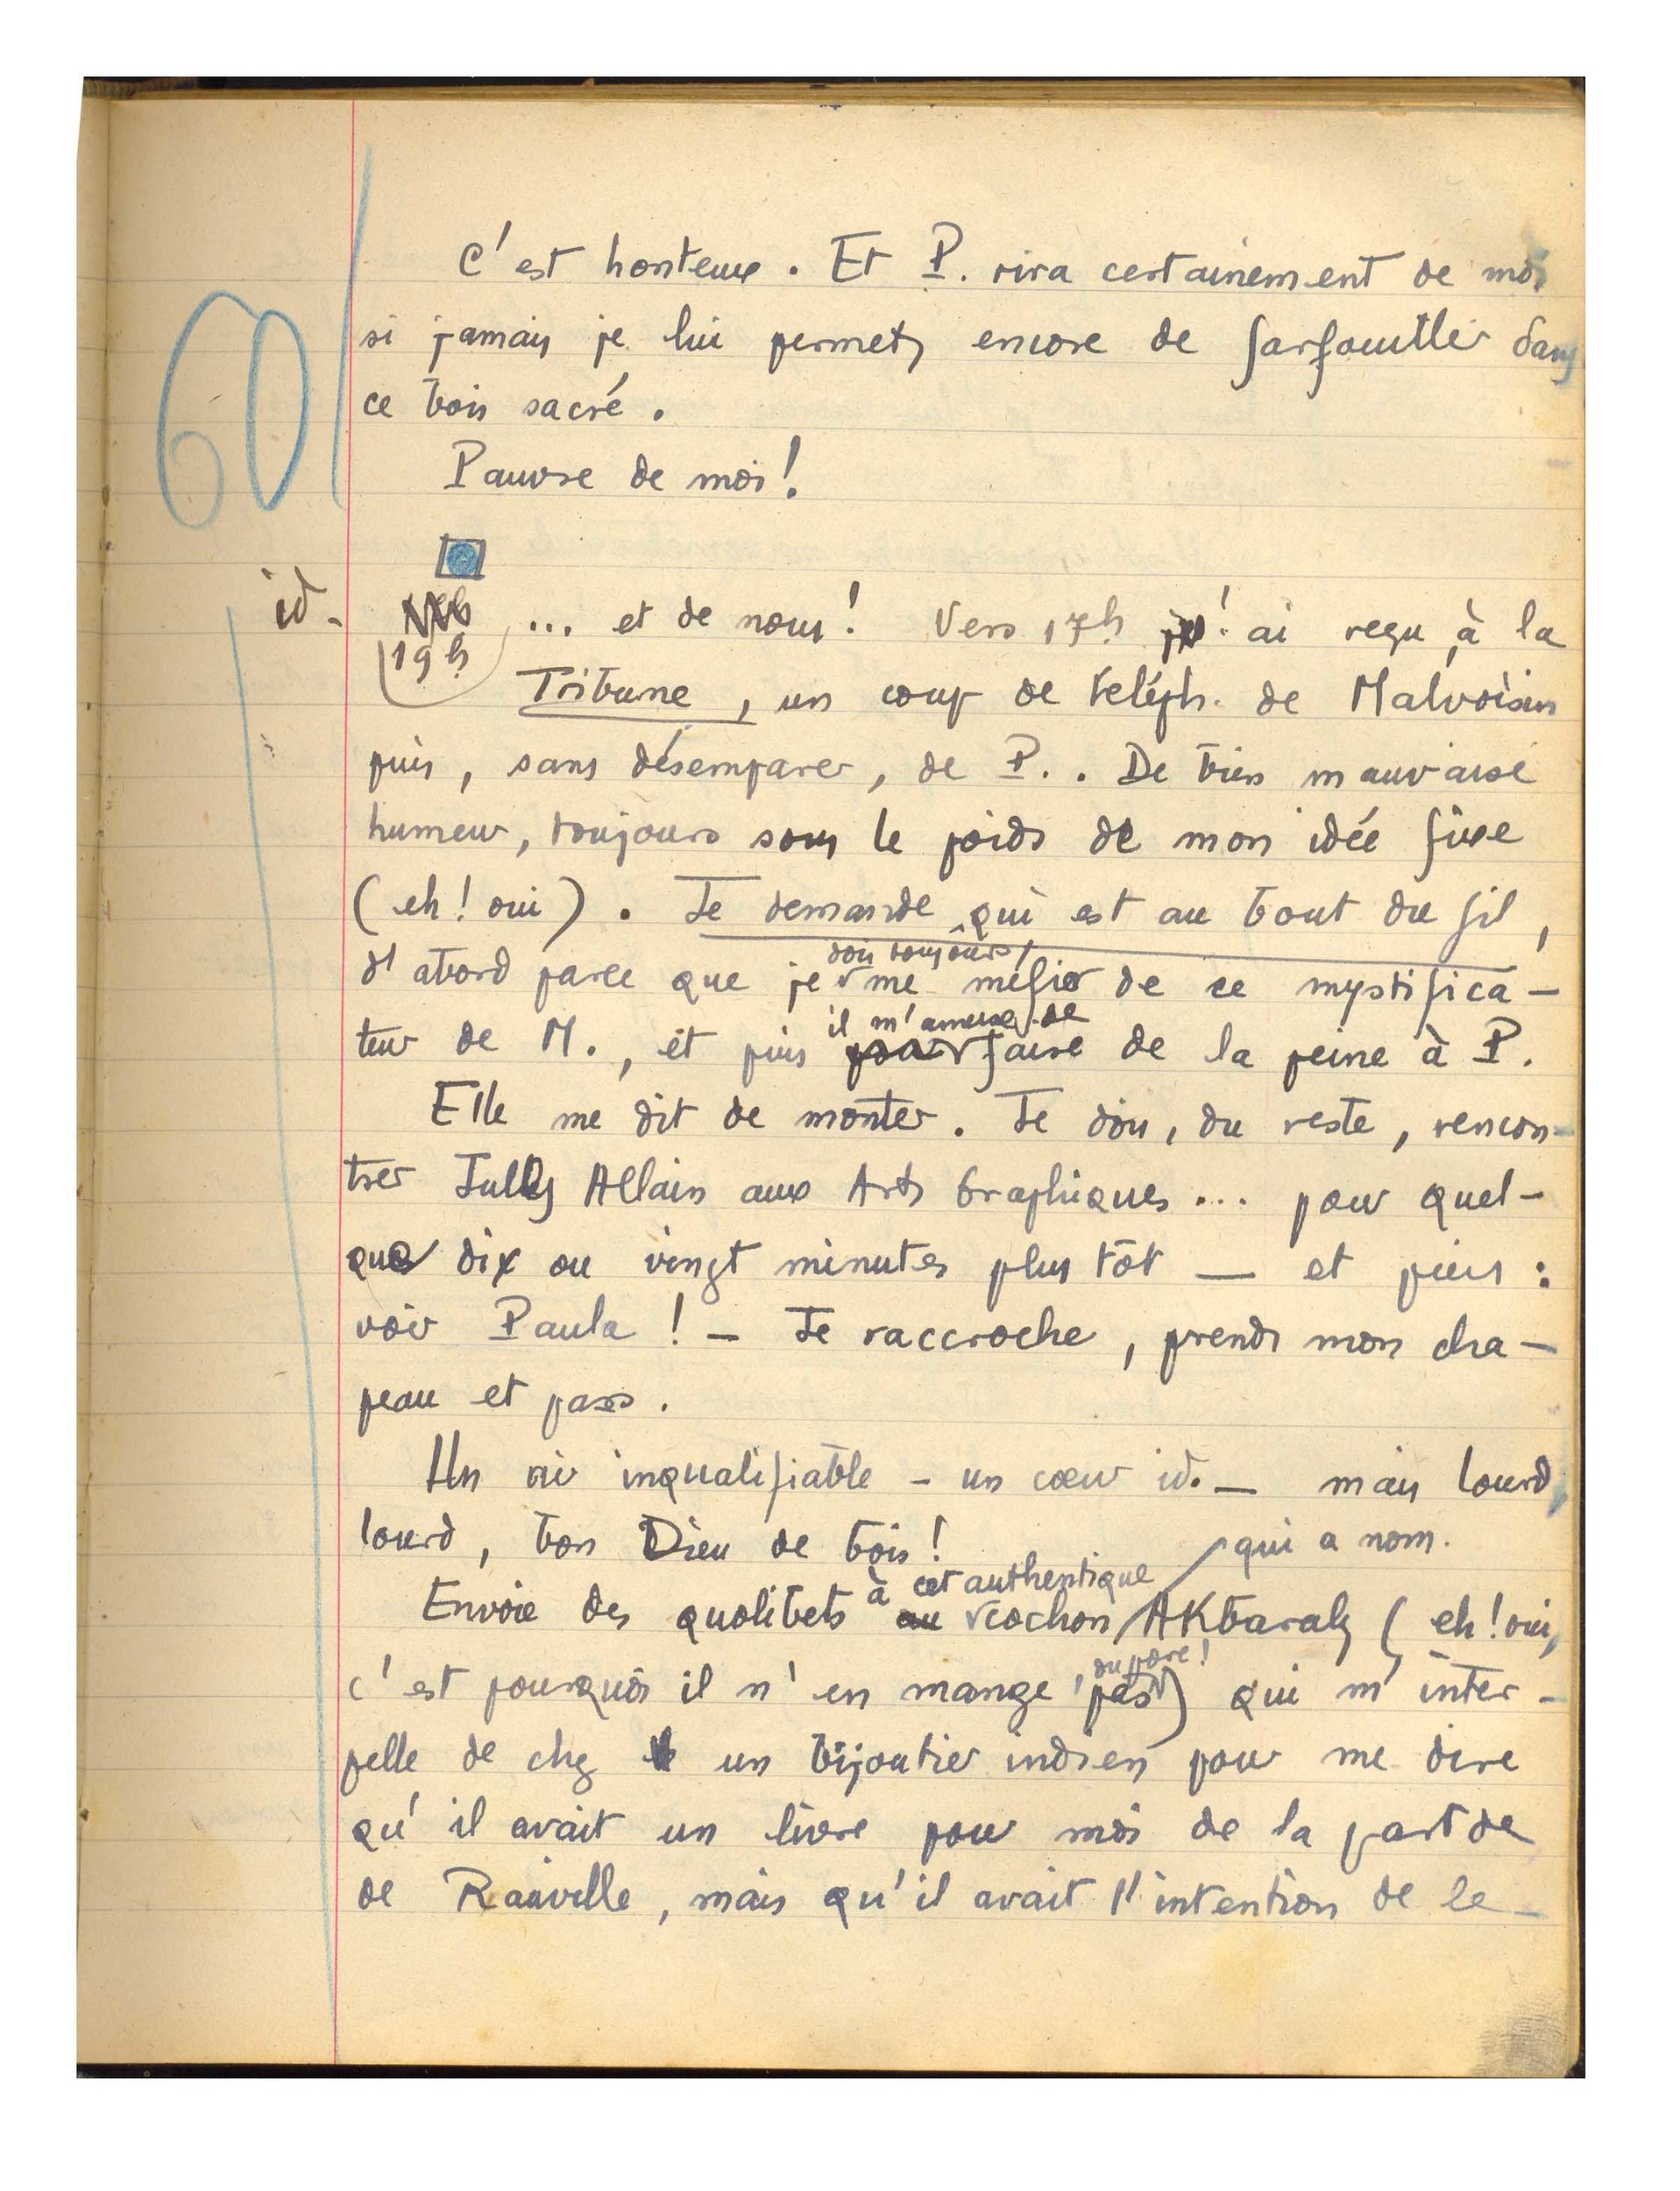 60/
C'est honteux. Et P. rira certainement de moi
si jamais je lui permets encore de farfouiller dans
ce bois sacré.
Pauvre de moi!
id. 19h ... et de nous! Vers 17h j'ai reçu, à la
Tribune, un coup de téléph. de Malvoisin
puis, sans désemparer, de P.. De très mauvaise
humeur, toujours sous le poids de mon idée fixe
(eh! oui). Je demande qui est au bout du fil,
dois toujours
d'abord parce que je me méfier de ce mystifica-
il m'amuse de
teur de M., et puis pour faire de la peine à P.
Elle me dit de monter. Je dois, du reste, rencon-
trer Jully Allain aux Arts Graphiques... pour quel-
que dix ou vingt minutes plus tôt — et puis :
voir Paula ! - Je raccroche, prends mon cha-
peau et pars.
Un air inqualifiable - un cœur id. — mais lourd,
lourd, bon Dieu de bois!
qui a nom.
à cet authentique
Envoie des quolibets au cochon Akbaraly (eh! oui,
du porc!
c'est pourquoi il n'en mange pas) qui m'inter-
pelle de chez un bijoutier indien pour me dire
qu'il avait un livre pour moi de la part de
de Rauville, mais qu'il avait l'intention de le